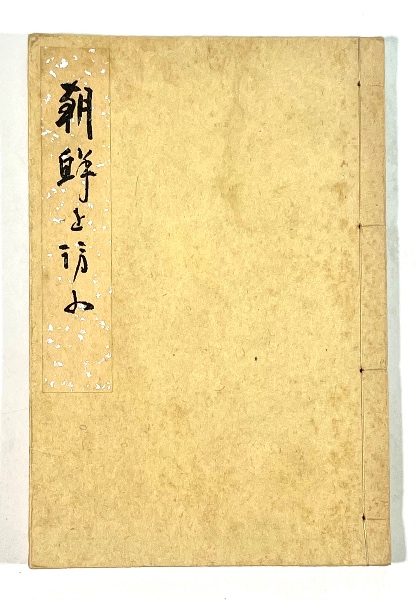 朝鮮を訪ふ